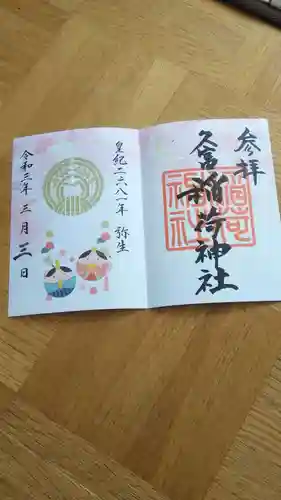 参拝
久富稲荷神社
皇紀二六八一年 弥生
令和三年三月三日